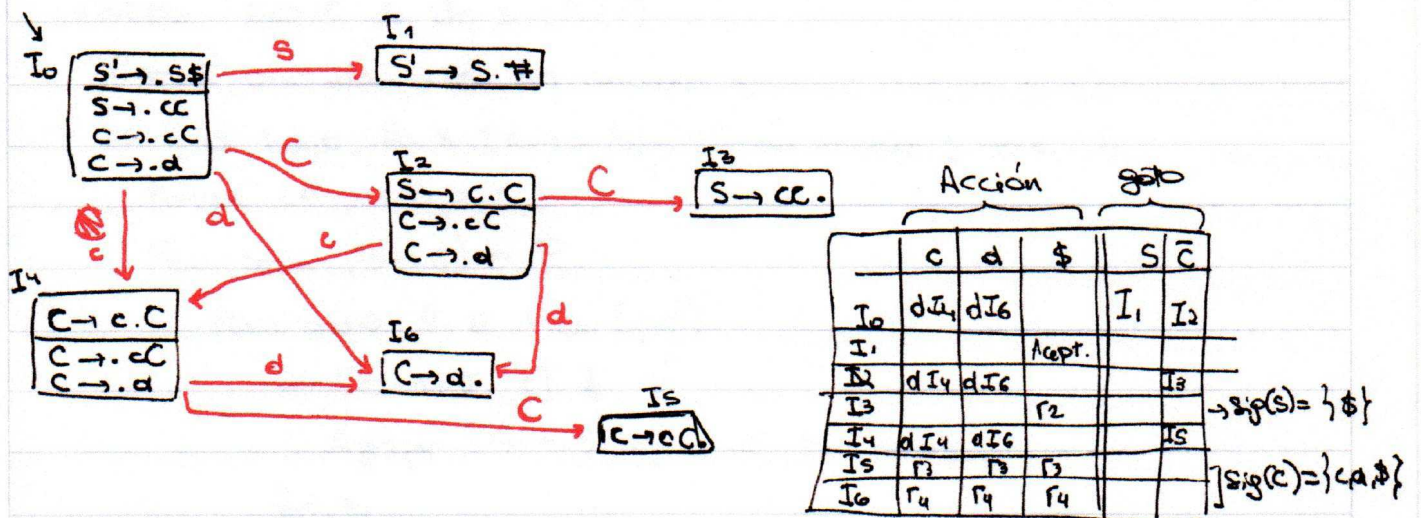 I0
S' → .S$
S → .CC
C → .cC
C → .d
S
I1
S' → S.#
C
d
c
I2
S → C.C
C → .cC
C → .d
C
I3
S → CC.
c
d
I4
C → c.C
C → .cC
C → .d
d
I6
C → d.
C
I5
C → cC.
Acción goto
c d $ S C
I0 dI4 dI6 I1 I2
I1 Acept.
I2 dI4 dI6 I3
I3 r2 → Sig(S) = {$}
I4 dI4 dI6 I5
I5 r3 r3 r3
I6 r4 r4 r4 ] Sig(C) = {c,d,$}